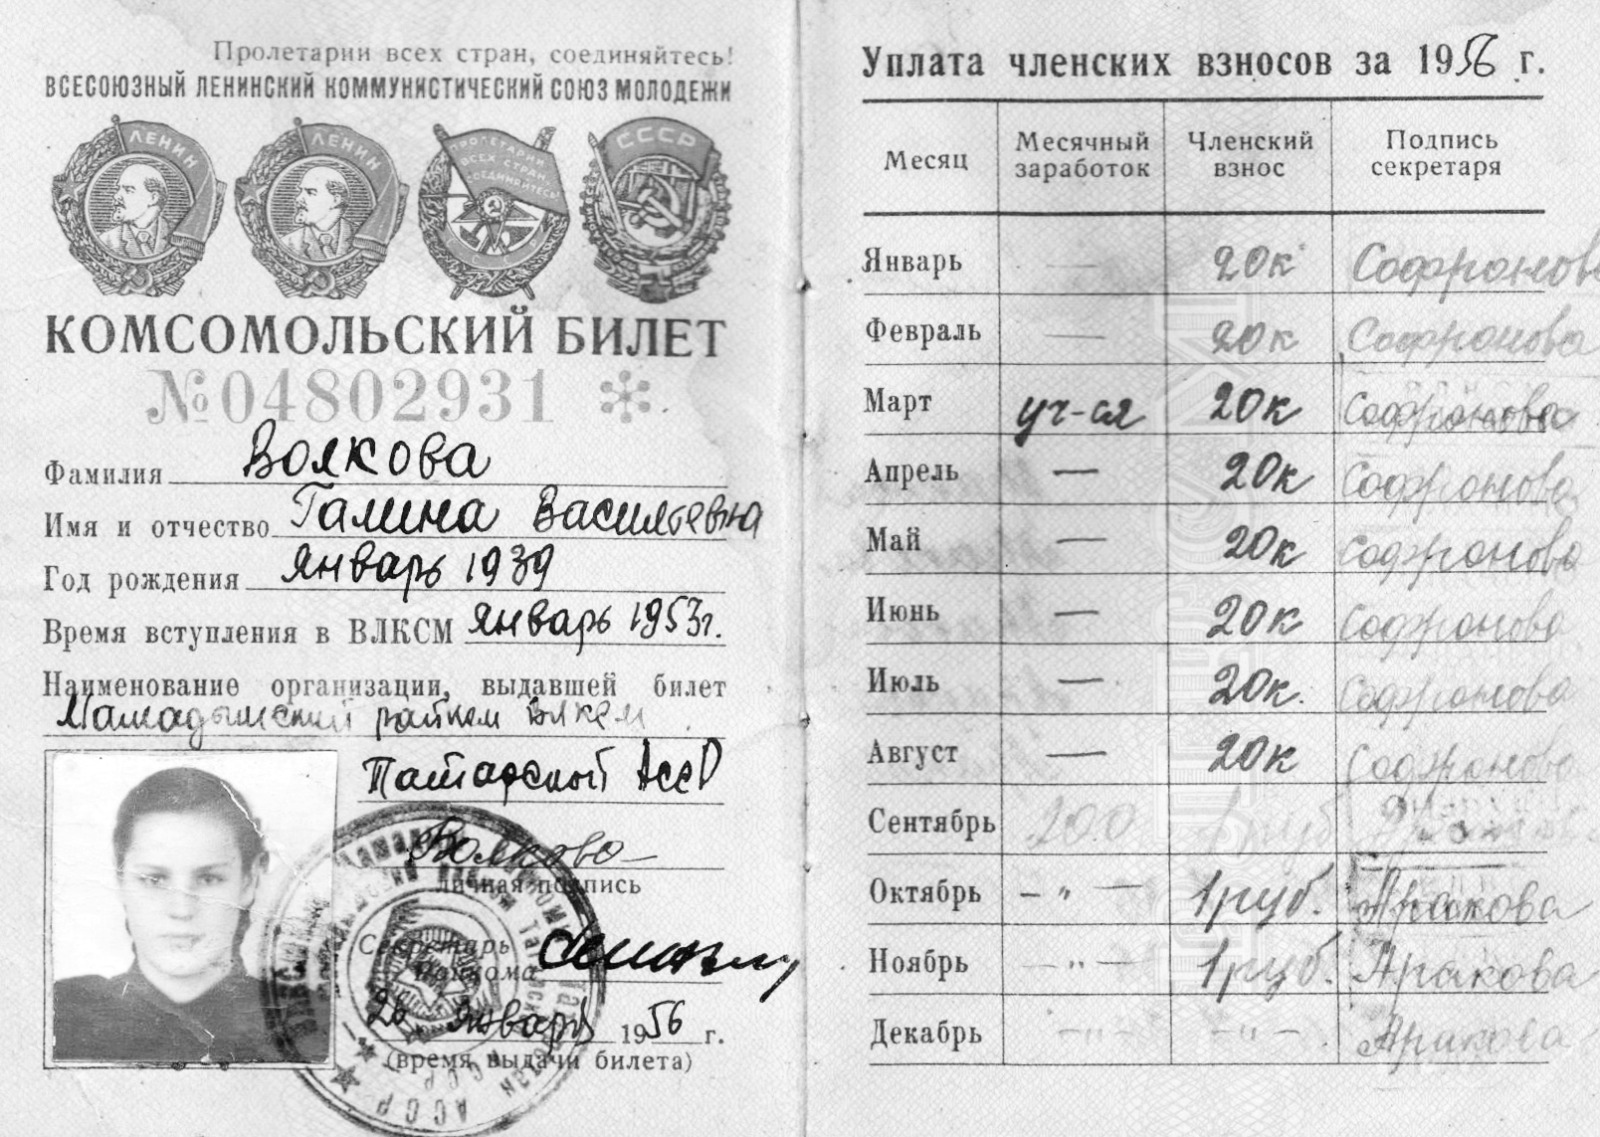 Пролетарии всех стран, соединяйтесь!
ВСЕСОЮЗНЫЙ ЛЕНИНСКИЙ КОММУНИСТИЧЕСКИЙ СОЮЗ МОЛОДЕЖИ
ЛЕНИН ЛЕНИН ПРОЛЕТАРИИ ВСЕХ СТРАН, СОЕДИНЯЙТЕСЬ! СССР
КОМСОМОЛЬСКИЙ БИЛЕТ
№04802931
Фамилия Волкова
Имя и отчество Галина Васильевна
Год рождения январь 1939
Время вступления в ВЛКСМ январь 1953г.
Наименование организации, выдавшей билет
Мамадышский райком ВЛКСМ
Татарской АССР
Волкова
личная подпись
Секретарь
Райкома
26 января 1956 г.
(время выдачи билета)
Уплата членских взносов за 1956 г.
Месяц Месячный заработок Членский взнос Подпись секретаря
Январь — 20к Софронова
Февраль — 20к Софронова
Март уч-ся 20к Софронова
Апрель — 20к Софронова
Май — 20к Софронова
Июнь — 20к Софронова
Июль — 20к. Софронова
Август — 20к Софронова
Сентябрь 200 1 руб.
Октябрь -"- 1 руб. Аракова
Ноябрь -"- 1 руб. Аракова
Декабрь -"- -"- Аракова